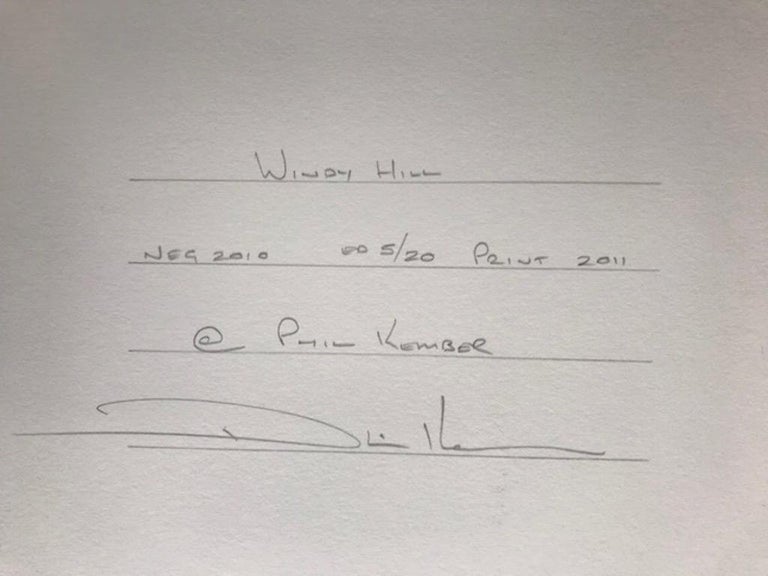 WINDY HILL
NEG 2010 ED 5/20 PRINT 2011
@ PHIL KEMBER